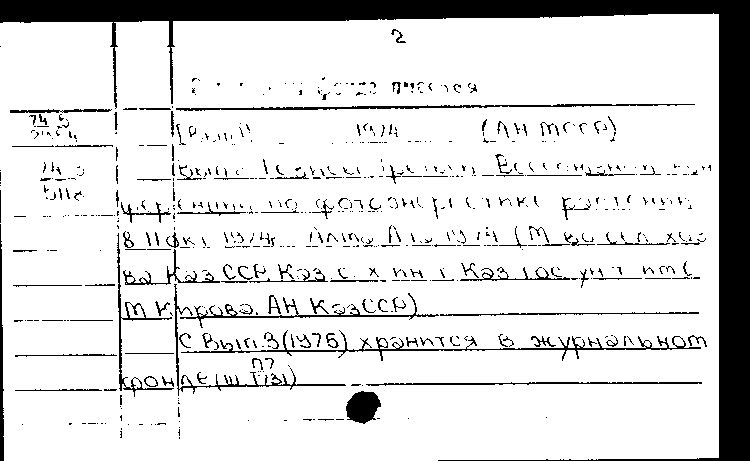 2
фонде имеются
74 5
[Вып 1] 1974 (АН МССР)
74 5
5118
Вып 2 Тезисы Третьей Всесоюзной кон
ференции по фотоэнергетике растений
8 11 окт 1974г Алма Ата 1974 (М во сел хоз
ва Каз ССР, Каз с х ин т Каз гос ун т им С
М Кирова. АН КазССР)
С Вып.3(1975) хранится в журнальном
фонде (Ш П7/1731)